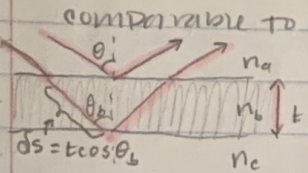 comparable to
θi
nₐ
θb
n_b t
ds = t cos θb
n_c